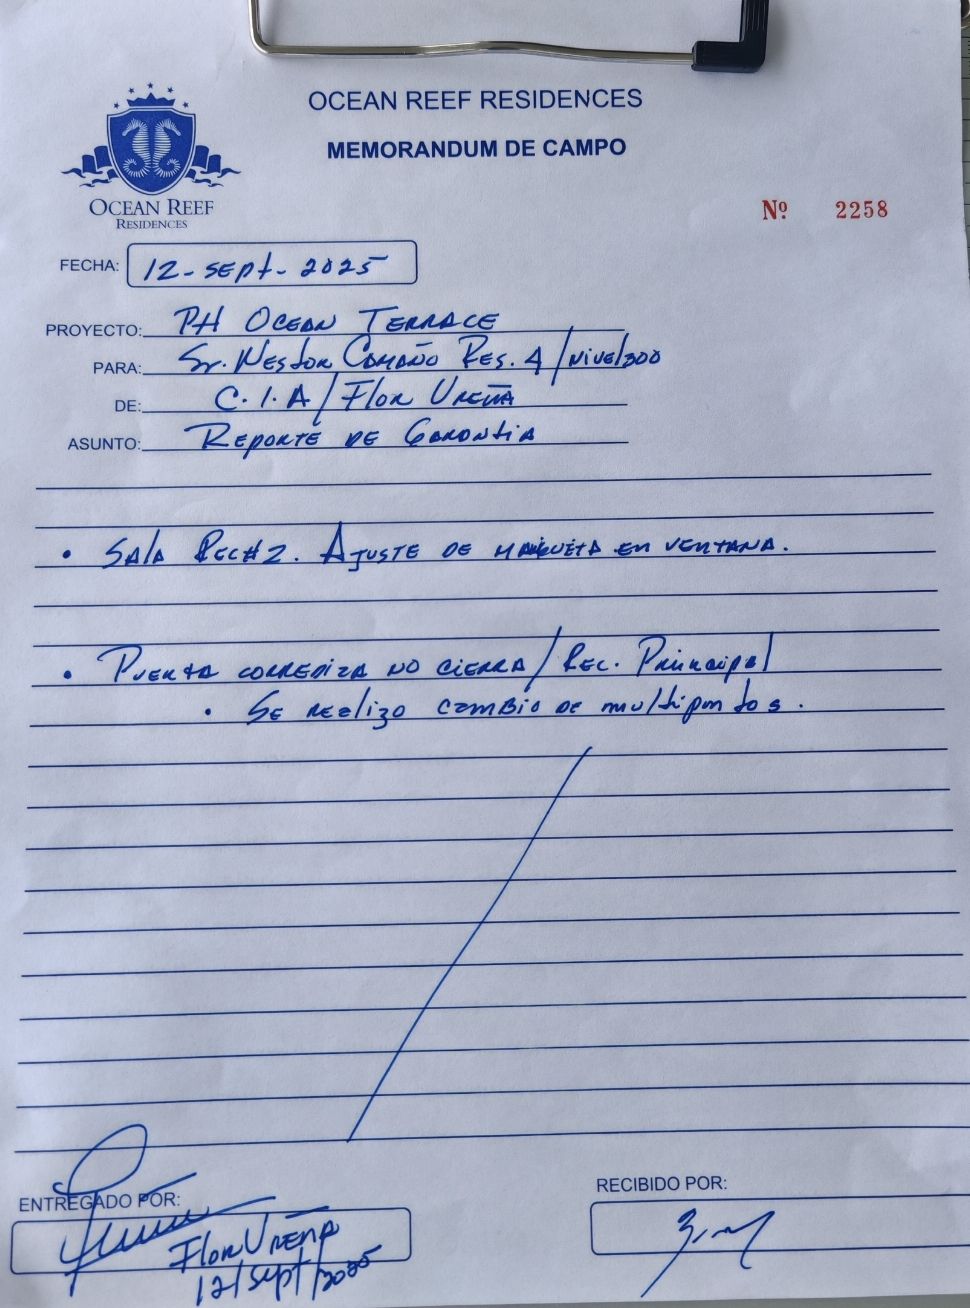 OCEAN REEF RESIDENCES
MEMORANDUM DE CAMPO
OCEAN REEF
RESIDENCES
Nº 2258
FECHA: 12-SEPT-2025
PROYECTO: PH OCEAN TERRACE
PARA: Sr. NESTOR CAMAÑO RES. 4/NIVEL300
DE: C.I.A/FLOR UREÑA
ASUNTO: REPORTE DE GARANTIA
• SALA REC#2. AJUSTE DE MAQUETA EN VENTANA.
• PUERTA CORREDIZA NO CIERRA/REC. PRINCIPAL
• SE REALIZO CAMBIO DE MULTIPUNTOS.
ENTREGADO POR:
FLOR UREÑA
12/SEPT/2025
RECIBIDO POR: